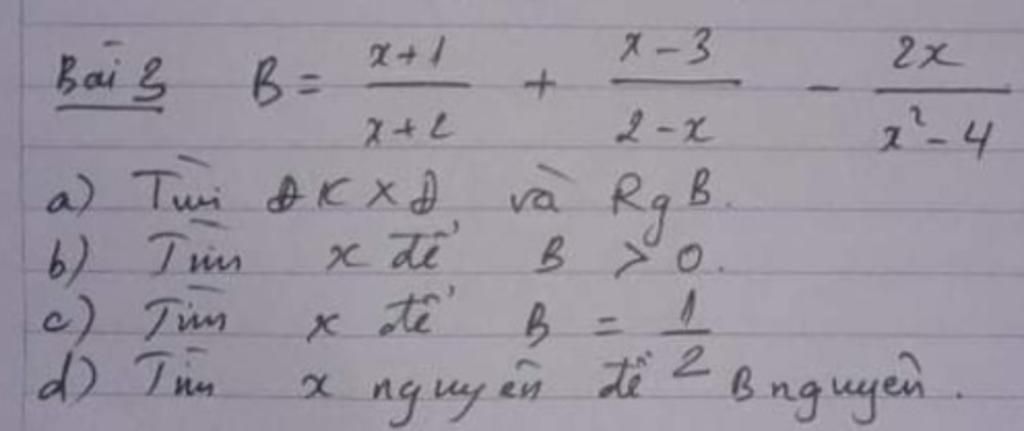 Bài 3 B = \frac{x+1}{x+2} + \frac{x-3}{2-x} - \frac{2x}{x^2-4}
a) Tìm ĐKXĐ và Rg B.
b) Tìm x để B > 0.
c) Tìm x để B = \frac{1}{2}
d) Tìm x nguyên để B nguyên.